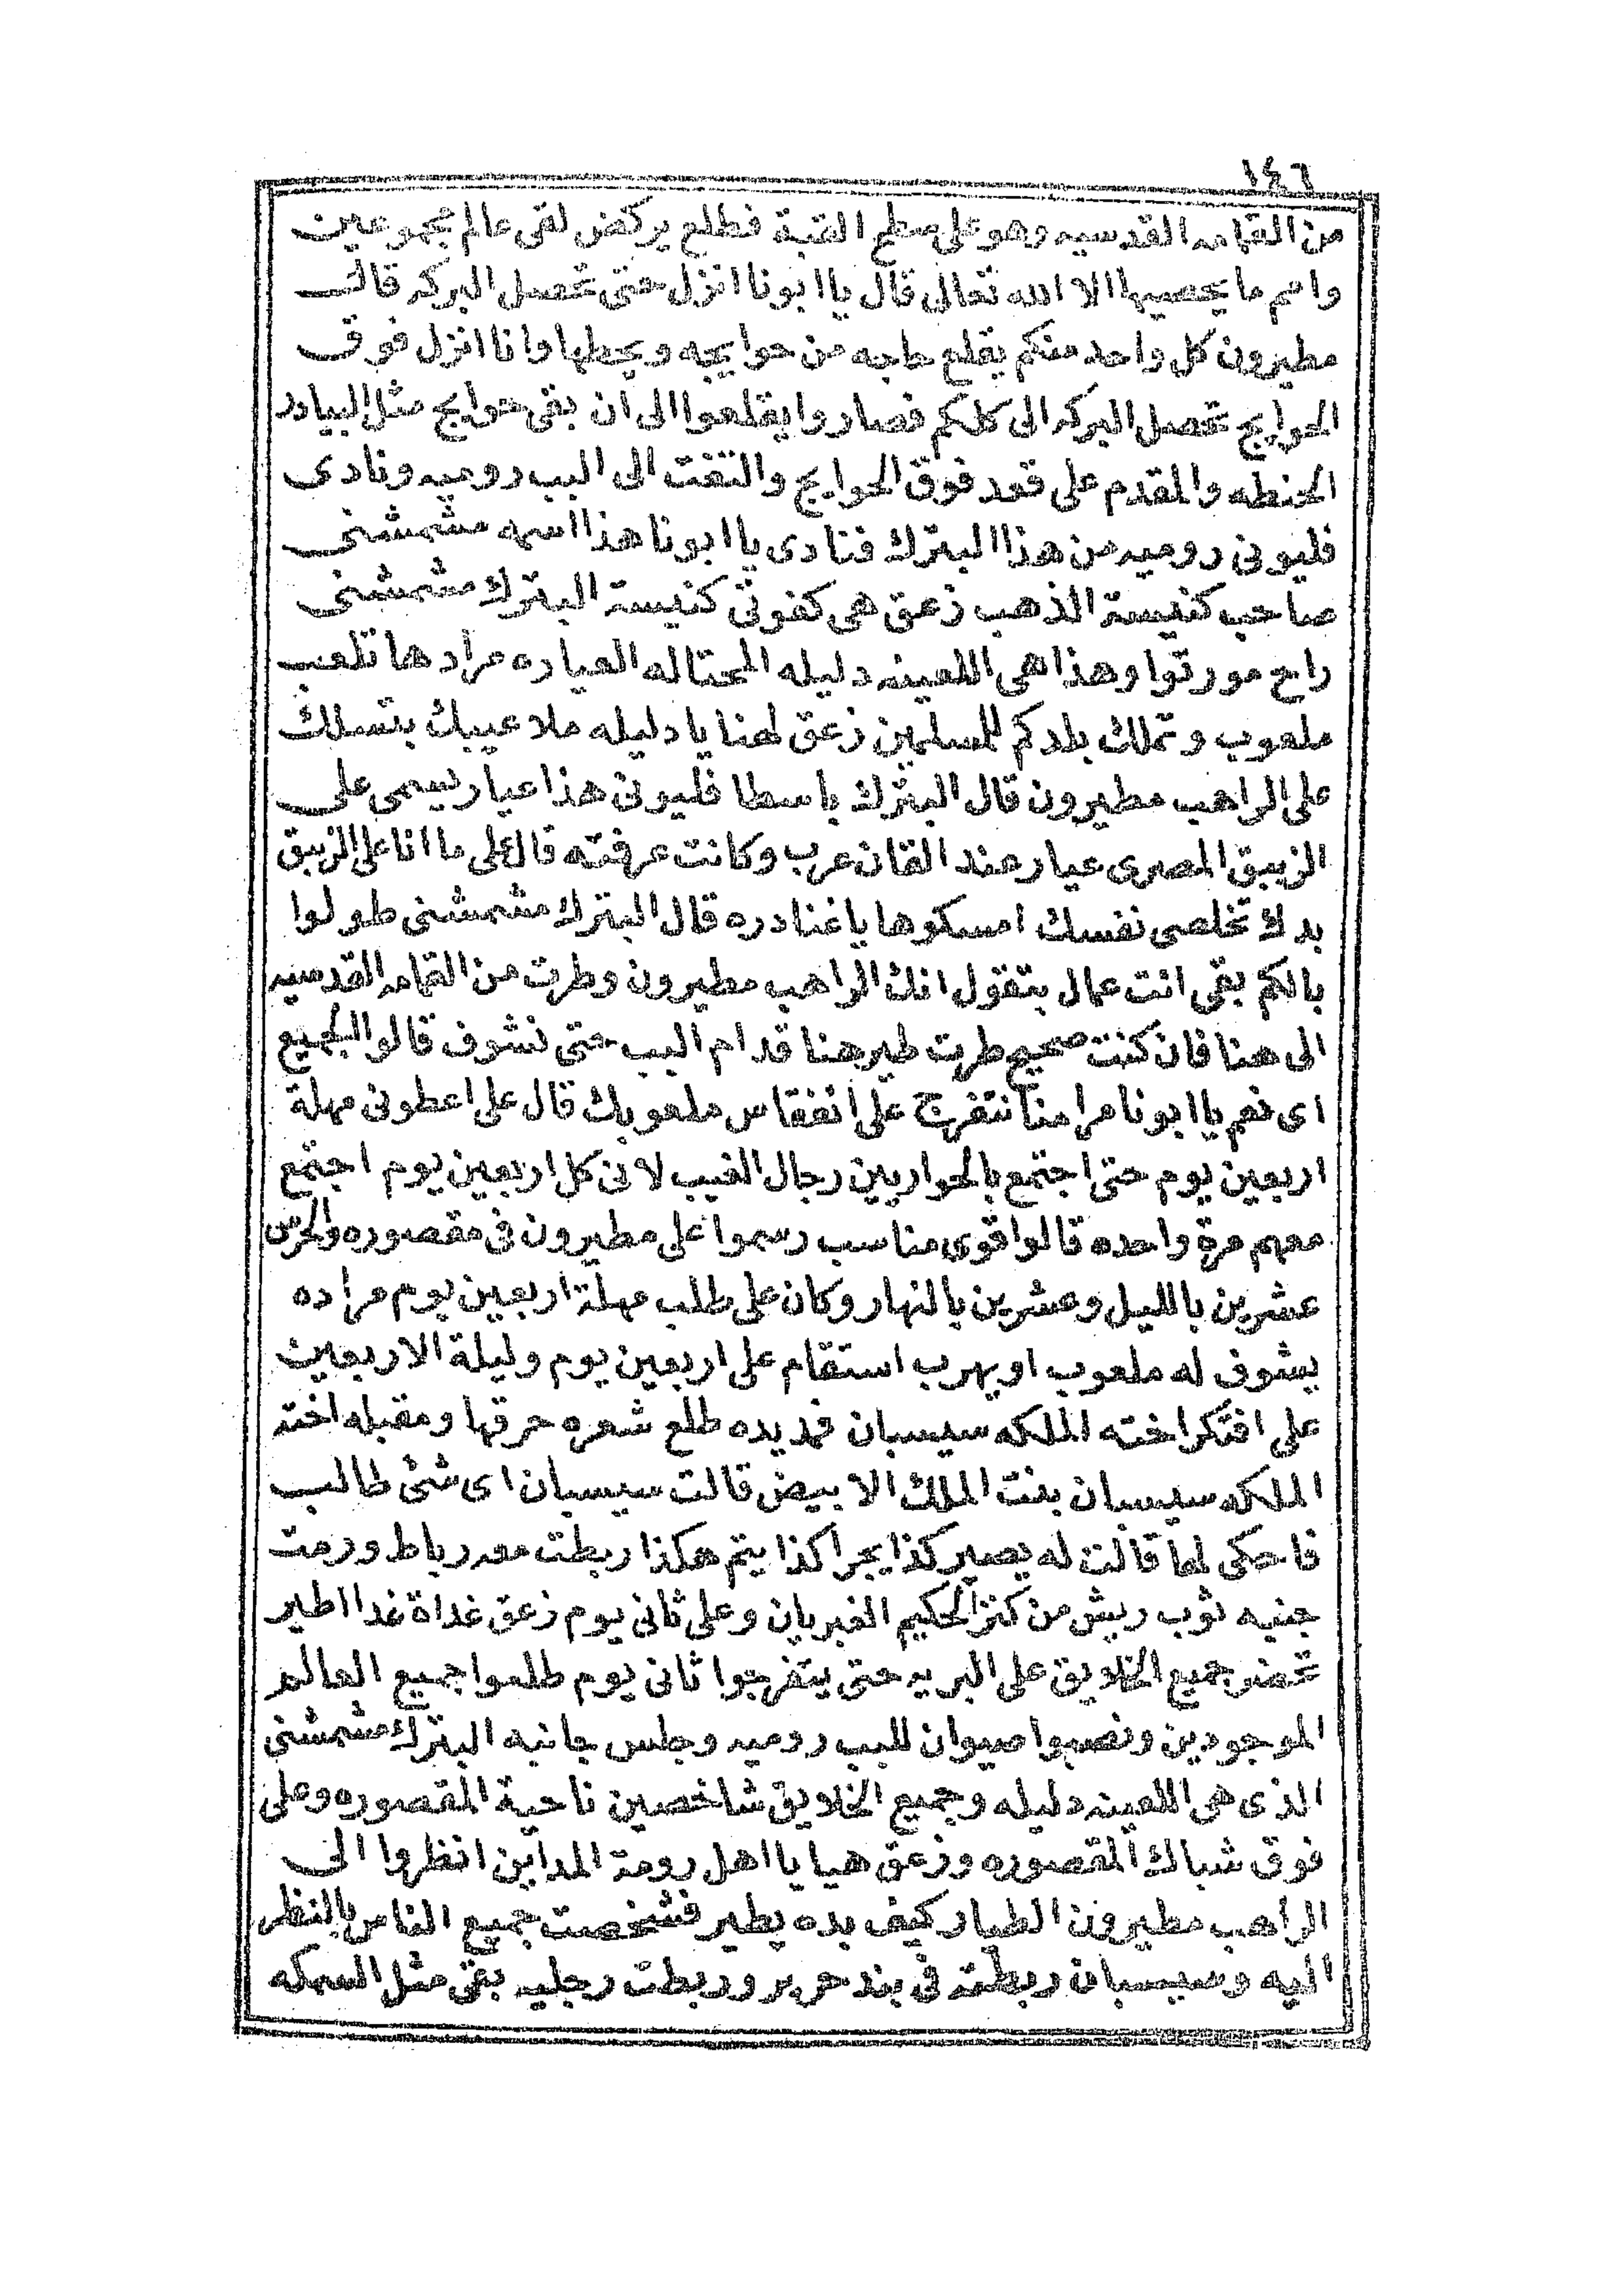 ١٤٦
من القمامه القدسيه وهو على سطح القبة فطلع يركض لقى عالم مجموعين
وامم ما يحصيها الا الله تعالى قال يا ابونا انزل حتى تحصل البركه قال
مطيرون كل واحد منكم يقلع حاجه من حوايجه ويحطها وانا انزل فوق
الحوايج تحصل البركه الى كلكم فصاروا يقلعوا الى ان بقى حوايج مثل البيادر
الحنطه والمقدم على قعد فوق الحوايج والتفت الى البب روميه ونادى
فليونى روميه من هذا البترك فنادى يا ابونا هذا اسمه مشمشنى
صاحب كنيسة الذهب زعق هى كفونى كنيسة البترك مشمشنى
راح مورتوا وهذا هى اللعينه دليله المحتاله العياره مرادها تلعب
ملعوب وتملك بلدكم للمسلمين زعق لهنا يا دليله ملاعيبك بتسلك
على الراهب مطيرون قال البترك باسطا فليونى هذا عيار يسمى على
الزيبق المصرى عيار عند القان عرب وكانت عرفته قال على ما انا على الزيبق
بدك تخلصى نفسك امسكوها يا غنادره قال البترك مشمشنى طولوا
بالكم بقى انت عمال بتقول انك الراهب مطيرون وطرت من القمامه القدسيه
الى هنا فان كنت صحيح طرت طير هنا قدام البب حتى نشوف قالوا الجميع
اى نعم يا ابونا مرامنا نتفرج على انفقاس ملعوبك قال على اعطونى مهلة
اربعين يوم حتى اجتمع بالحواريين رجال الغيب لانى كل اربعين يوم اجتمع
معهم مرة واحده قالوا قوى مناسب رسموا على مطيرون فى مقصوره والحرس
عشرين بالليل وعشرين بالنهار وكان على طلب مهلة اربعين يوم مراده
يشوف له ملعوب او يهرب استقام على اربعين يوم وليلة الاربعين
على افتكر اخته الملكه سيسبان فمد يده طلع شعره حرقها ومقبله اخته
الملكه سيسبان بنت الملك الابيض قالت سيسبان اى شئ طالب
فاحكى لها قالت له يصير كذا يجرا كذا يتم هكذا ربطت معه رباط ورمت
جنبه ثوب ريش من كنز الحكيم الغبريان وعلى ثانى يوم زعق غداة غدا اطير
تحضر جميع الخلايق على البريه حتى يتفرجوا ثانى يوم طلعوا جميع العالم
الموجودين ونصبوا صيوان للبب روميه وجلس جانبه البترك مشمشنى
الذى هى اللعينه دليله وجميع الخلايق شاخصين ناحية المقصوره وعلى
فوق شباك المقصوره وزعق هيا يا اهل رومة المداين انظروا الى
الراهب مطيرون الطيار كيف بده يطير فشخصت جميع الناس بالنظر
اليه وسيسبان ربطته فى بند حرير وربطت رجليه بقى مثل السمكه